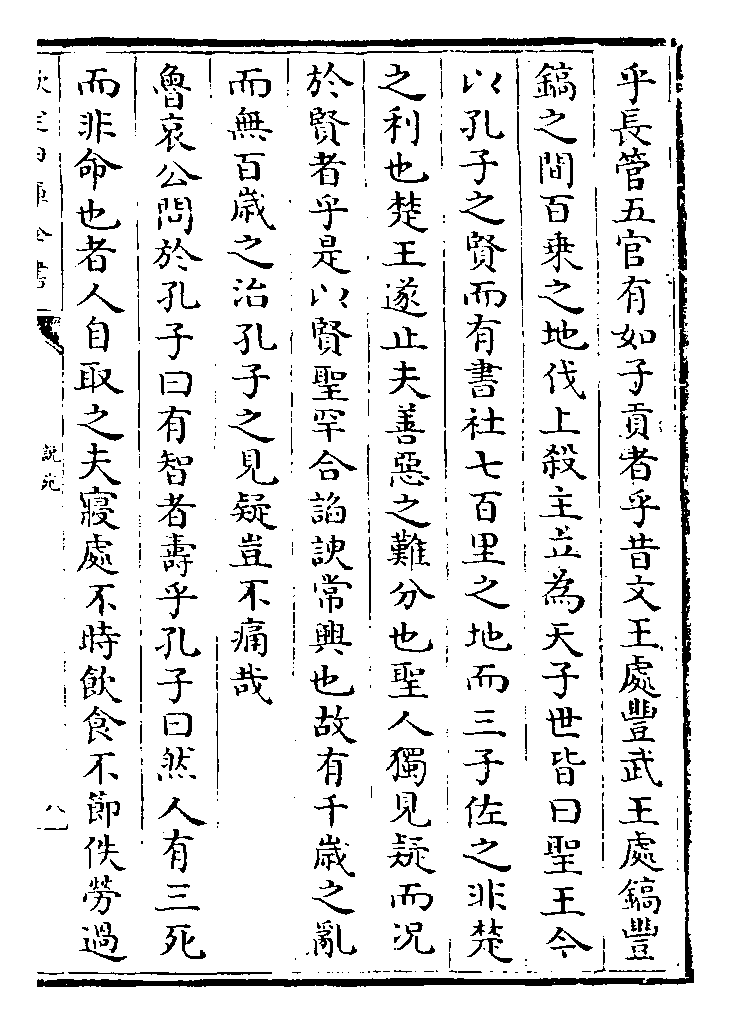 乎長管五官有如子貢者乎昔文王處豐武王處鎬豐
鎬之間百乗之地伐上殺主立為天子世皆曰聖王今
以孔子之賢而有書社七百里之地而三子佐之非楚
之利也楚王遂止夫善惡之難分也聖人獨見疑而况
於賢者乎是以賢聖罕合諂諛常興也故有千嵗之亂
而無百嵗之治孔子之見疑豈不痛哉
魯哀公問於孔子曰有智者壽乎孔子曰然人有三死
而非命也者人自取之夫寢處不時飲食不節佚勞過
欽定四庫全書
說苑
八